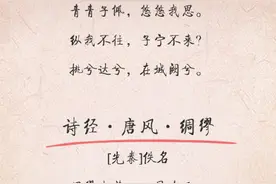 青青子佩，悠悠我思。
纵我不往，子宁不来？
挑兮达兮，在城阙兮。
诗经·唐风·绸缪
[先秦]佚名